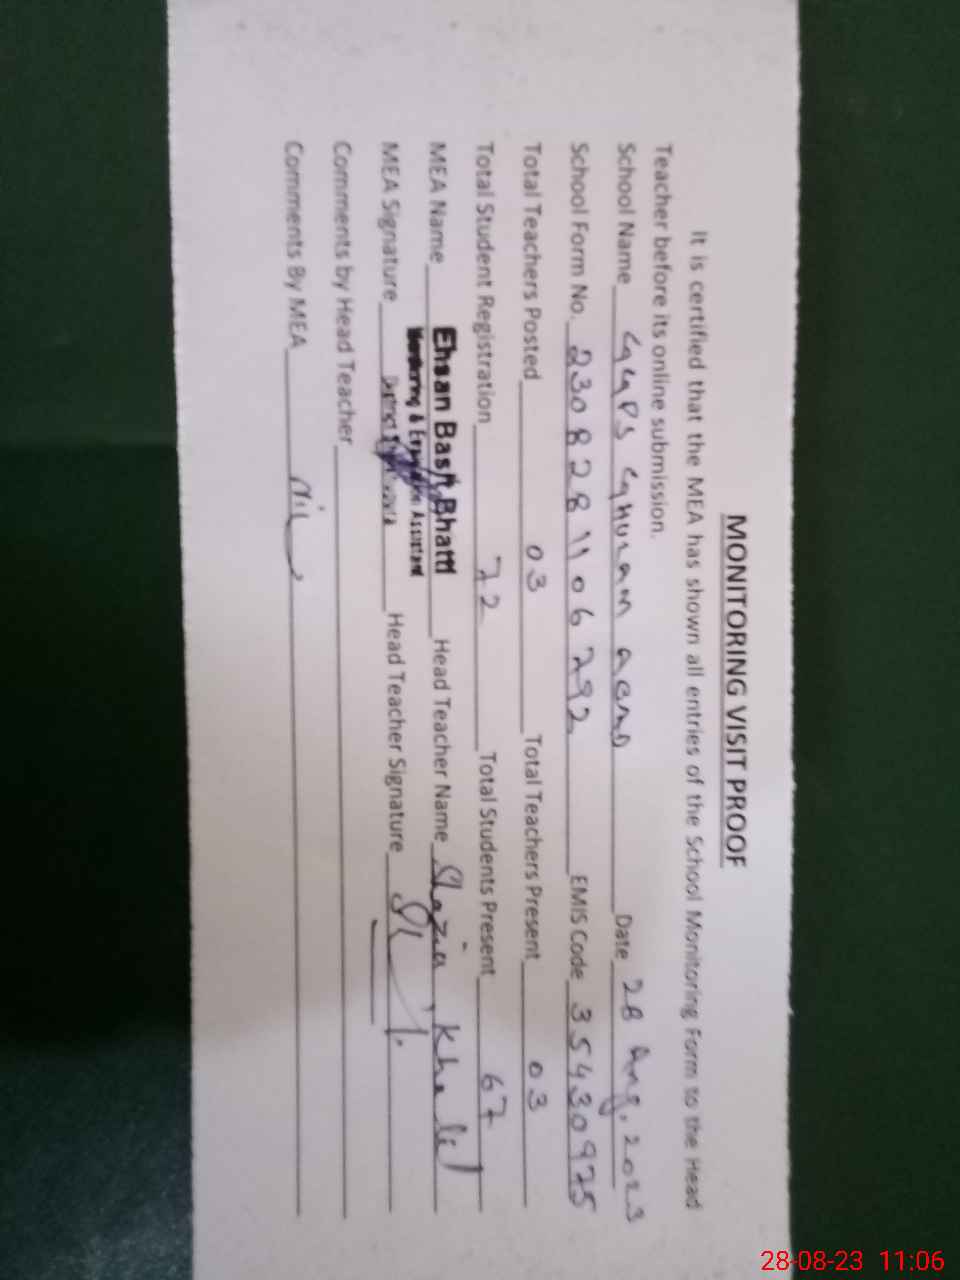 MONITORING VISIT PROOF
It is certified that the MEA has shown all entries of the School Monitoring Form to the Head
Teacher before its online submission.
School Name GGPS Date 28 Aug, 2023
School Form No. 230828 1106292 EMIS Code 35430925
Total Teachers Posted 03 Total Teachers Present 03
Total Student Registration 72 Total Students Present 67
MEA Name Ehsan Basit Bhatti Head Teacher Name Shazia Khalil
Monitoring & Evaluation Assistant
MEA Signature District Head Teacher Signature
Comments by Head Teacher
Comments By MEA Nil
28-08-23 11:06